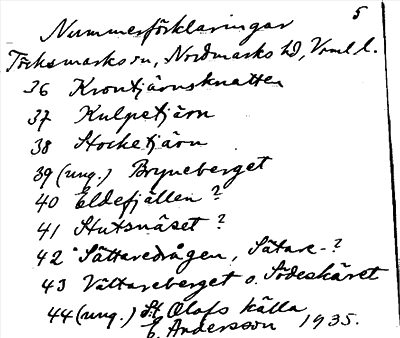 5
Nummerförklaringar
Töcksmarks sn, Nordmarks hd, Vrml l.
36 Krontjärnsknatten
37 Kulpetjärn
38 Stocketjärn
39 (ung.) Bryneberget
40 Eldefjällen ?
41 Stutsnäset ?
42 Sättaredrågen, Sätare- ?
43 Vättareberget o. Södeskäret
44 (ung.) S:t Olofs källa
E. Andersson 1935.